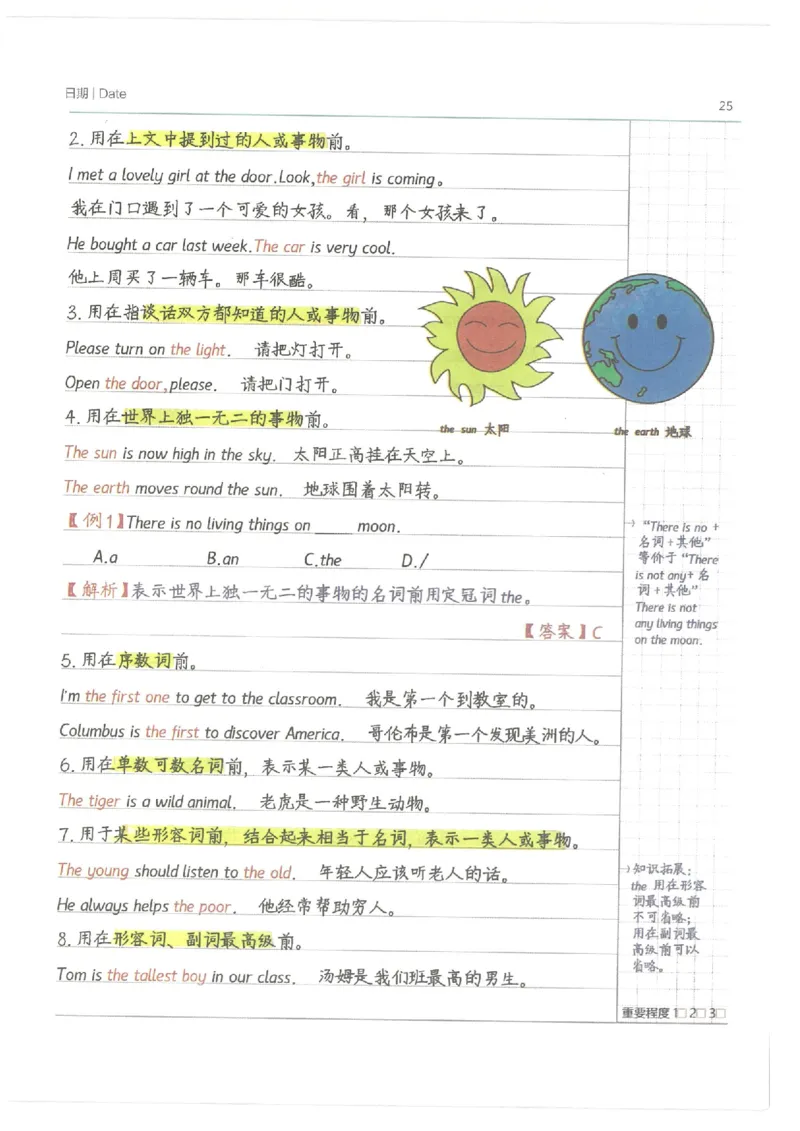 日期 | Date
25
2. 用在上文中提到过的人或事物前。
I met a lovely girl at the door.Look,the girl is coming。
我在门口遇到了一个可爱的女孩。看，那个女孩来了。
He bought a car last week.The car is very cool.
他上周买了一辆车。那车很酷。
3. 用在指谈话双方都知道的人或事物前。
Please turn on the light. 请把灯打开。
Open the door,please. 请把门打开。
4. 用在世界上独一无二的事物前。
the sun 太阳
the earth 地球
The sun is now high in the sky. 太阳正高挂在天空上。
The earth moves round the sun. 地球围着太阳转。
【例1】There is no living things on ____ moon.
A.a B.an C.the D./
【解析】表示世界上独一无二的事物的名词前用定冠词the。
【答案】C
→ “There is no +
名词+其他”
等价于“There
is not any+ 名
词+其他”
There is not
any living things
on the moon.
5. 用在序数词前。
I'm the first one to get to the classroom. 我是第一个到教室的。
Columbus is the first to discover America. 哥伦布是第一个发现美洲的人。
6. 用在单数可数名词前，表示某一类人或事物。
The tiger is a wild animal. 老虎是一种野生动物。
7. 用于某些形容词前，结合起来相当于名词，表示一类人或事物。
The young should listen to the old. 年轻人应该听老人的话。
He always helps the poor. 他经常帮助穷人。
8. 用在形容词、副词最高级前。
Tom is the tallest boy in our class. 汤姆是我们班最高的男生。
→知识拓展：
the 用在形容
词最高级前
不可省略；
用在副词最
高级前可以
省略。
重要程度 1□ 2□ 3□